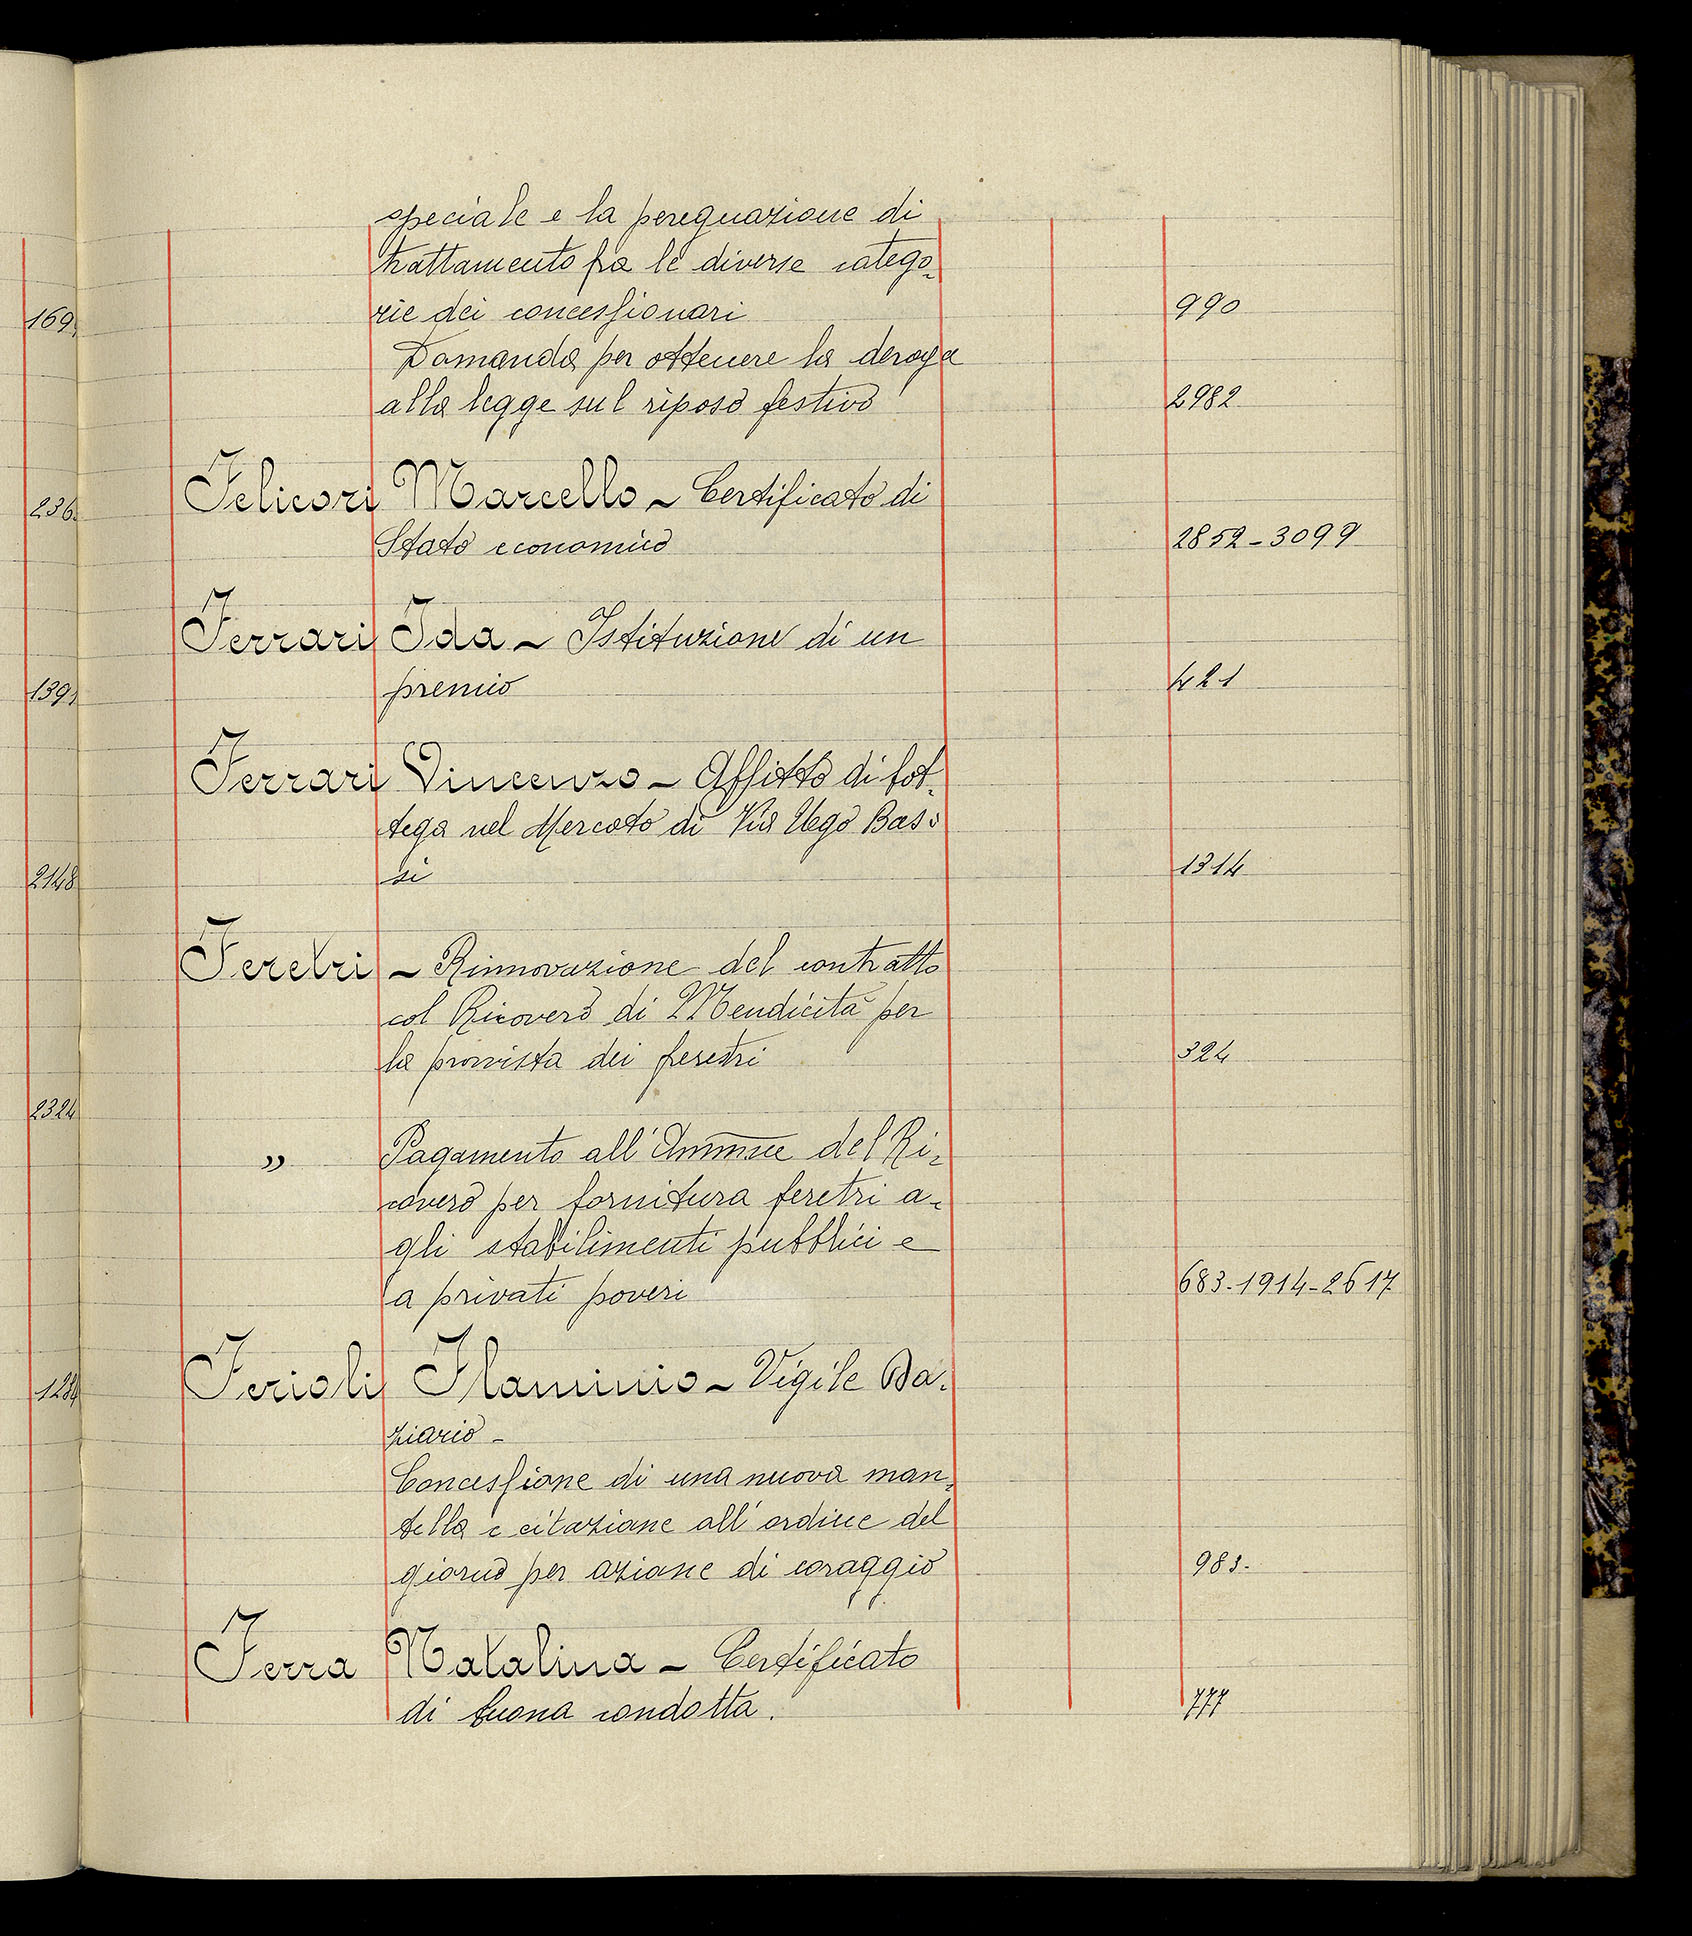 speciale e la perequazione di
trattamento fra le diverse catego-
rie dei concessionari 990
Domanda per ottenere la deroga
alla legge sul riposo festivo 2982
Felicori Marcello - Certificato di
Stato economico 2852-3099
Ferrari Ida - Istituzione di un
premio 421
Ferrari Vincenzo - Affitto di bot-
tega nel Mercato di Via Ugo Bas-
si 1314
Feretri - Rinnovazione del contratto
col Ricovero di Mendicità per
la provvista dei feretri 324
" Pagamento all'Ammne del Ri-
covero per fornitura feretri a-
gli stabilimenti pubblici e
a privati poveri 683-1914-2617
Ferioli Flaminio - Vigile Da-
ziario -
Concessione di una nuova man-
tella e citazione all'ordine del
giorno per azione di coraggio 983-
Ferra Natalina - Certificato
di buona condotta. 777
169
236
139
2148
2324